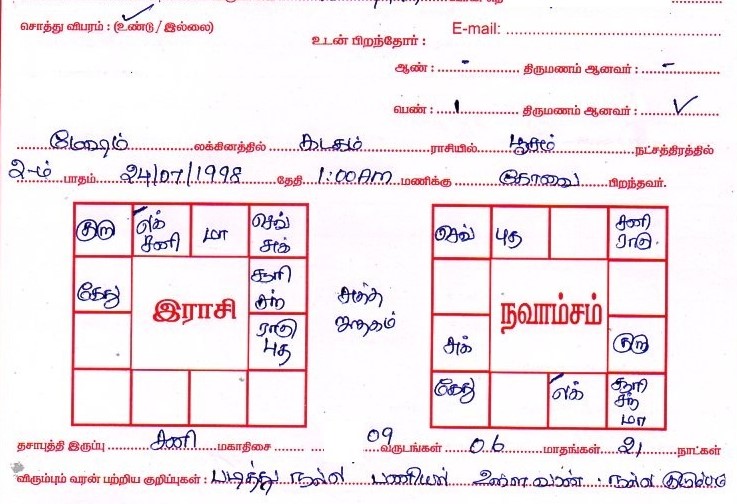 சொத்து விபரம் : (உண்டு / இல்லை)
E-mail:
உடன் பிறந்தோர் :
ஆண் : - திருமணம் ஆனவர் : -
பெண் : 1 திருமணம் ஆனவர் : ✓
மேஷம் லக்கினத்தில் கடகம் ராசியில் பூசம் நட்சத்திரத்தில்
2-ம் பாதம் 24/07/1998 தேதி 1:00AM மணிக்கு கோவை பிறந்தவர்.
குரு லக் சனி மா செவ் சுக்
கேது சூரி சந் ராகு புத
இராசி
சுத்த ஜாதகம்
செவ் புத சனி ராகு
சுக் குரு
கேது லக் சூரி சந் மா
நவாம்சம்
தசாபுத்தி இருப்பு சனி மகாதிசை 09 வருடங்கள் 06 மாதங்கள் 21 நாட்கள்
விரும்பும் வரன் பற்றிய குறிப்புகள் : படித்து நல்ல பணியில் உள்ள வரன் . நல்ல குடும்பம்